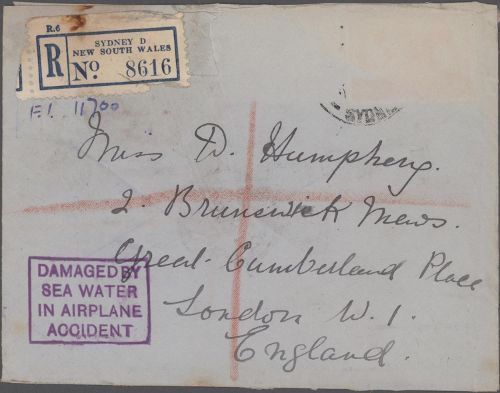 R.6
SYDNEY D
NEW SOUTH WALES
R No. 8616
F.I. 11700
SYDN
Miss D. Humphery.
2. Brunswick Mews.
Great Cumberland Place
London W.1.
England.
DAMAGED BY
SEA WATER
IN AIRPLANE
ACCIDENT